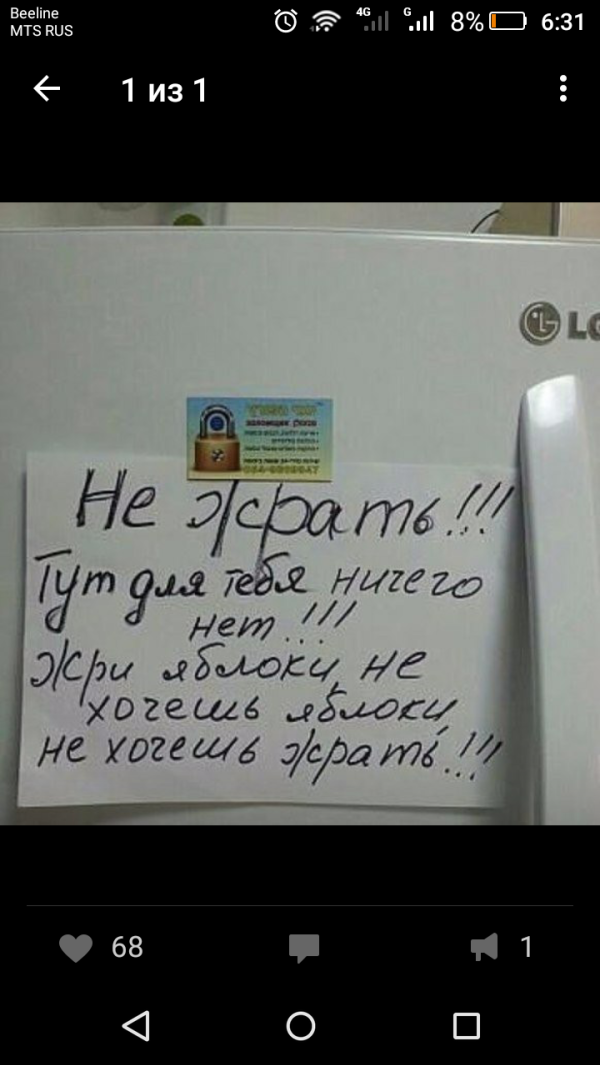 Beeline
MTS RUS
4G G 8% 6:31
1 из 1
LG
взломщик
Не жрать!!!
Тут для тебя ничего
нет!!!
Жри яблоки, не
хочешь яблоки,
не хочешь жрать!!!
68 1